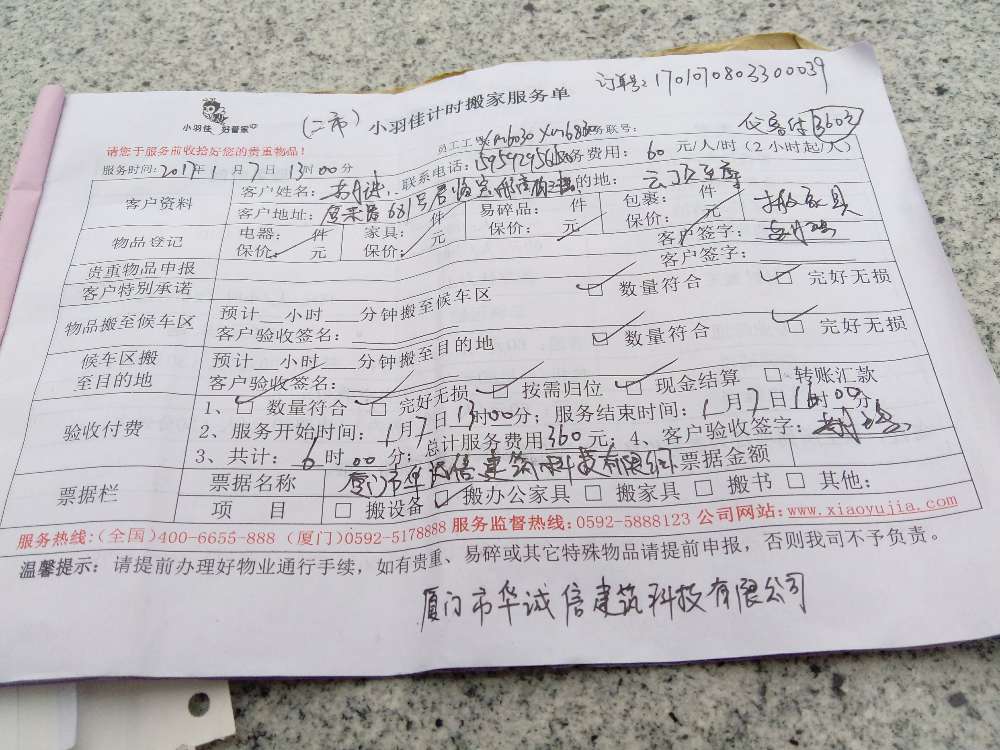 小羽佳 好管家
(二市) 小羽佳计时搬家服务单 订单号:1701070803300039
请您于服务前收拾好您的贵重物品!
员工工号 xm6030 xm6830 务联号:
服务时间:2017年1月7日13时00分 联系电话: 务费用:60元/人/时(2小时起/人)
客户资料
客户姓名: 的地:
客户地址:
物品登记
电器: 件 家具: 件 易碎品: 件 包裹: 件 搬家具
保价: 元 保价: 元 保价: 元 保价: 元
贵重物品申报 客户签字:
客户特别承诺 客户签字:
物品搬至候车区
预计 小时 分钟搬至候车区 □ 数量符合 □ 完好无损
客户验收签名:
候车区搬至目的地
预计 小时 分钟搬至目的地 □ 数量符合 □ 完好无损
客户验收签名:
验收付费
1、□ 数量符合 □ 完好无损 □ 按需归位 □ 现金结算 □ 转账汇款
2、服务开始时间:1月7日13时00分;服务结束时间:1月7日16时00分;
3、共计:6时00分;总计服务费用360元;4、客户验收签字:
票据栏
票据名称 厦门市华诚信建筑科技有限公司 票据金额
项 目 □ 搬设备 □ 搬办公家具 □ 搬家具 □ 搬书 □ 其他:
服务热线:(全国)400-6655-888 (厦门)0592-5178888 服务监督热线:0592-5888123 公司网站:www.xiaoyujia.com
温馨提示:请提前办理好物业通行手续,如有贵重、易碎或其它特殊物品请提前申报,否则我司不予负责。
厦门市华诚信建筑科技有限公司